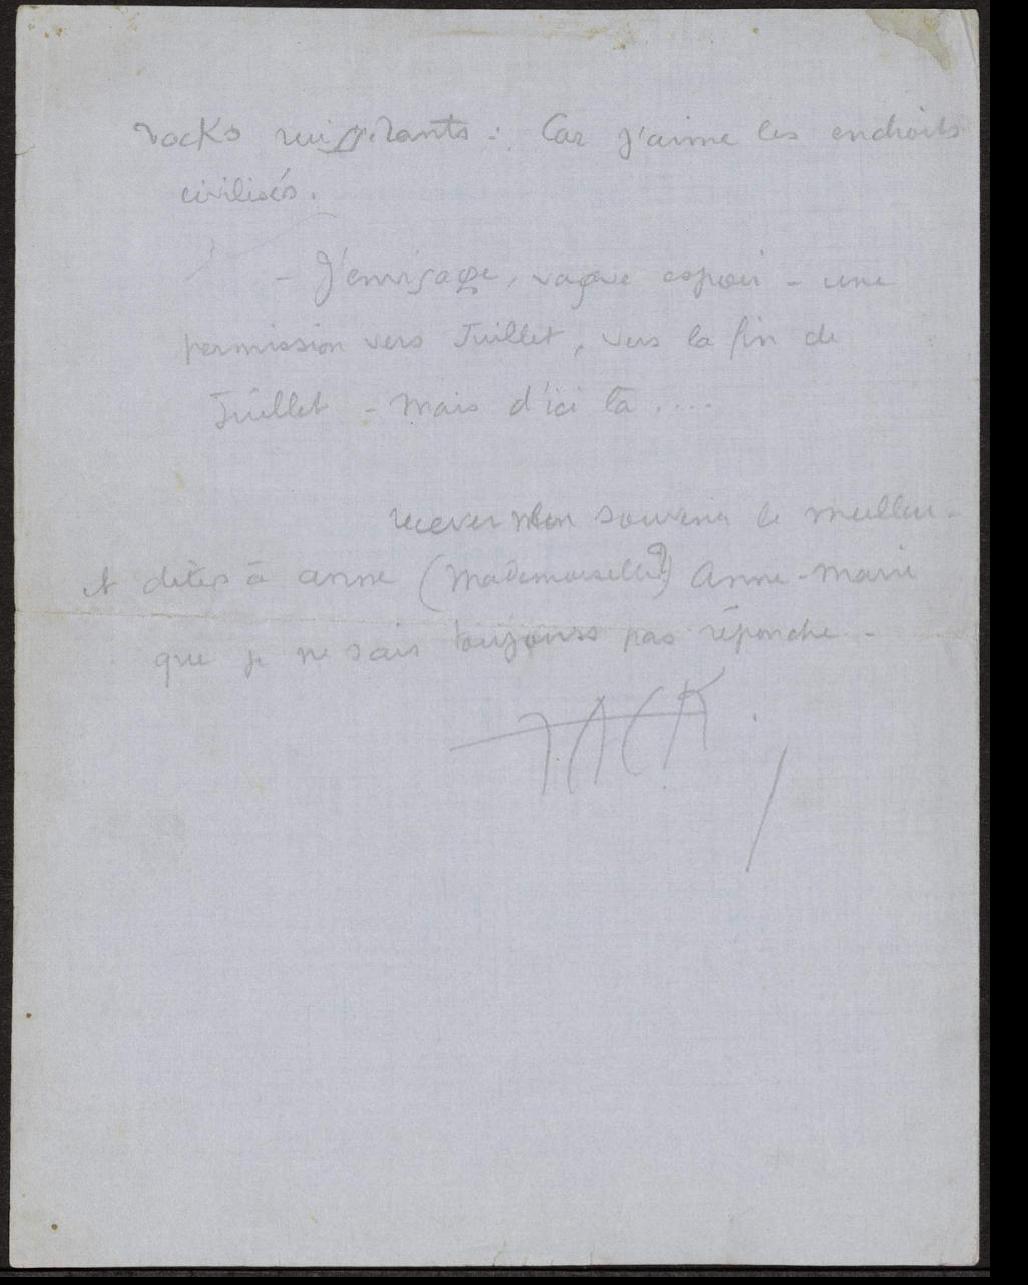 rocks : Car j'aime les endroits
civilisés.
- J'envisage, vague espoir - une
permission vers Juillet, vers la fin de
Juillet - Mais d'ici là ....
recevez mon souvenir le meilleur -
et dites à Anne (Mademoiselle?) Anne-Marie
que je ne sais toujours pas répondre -
JACK.